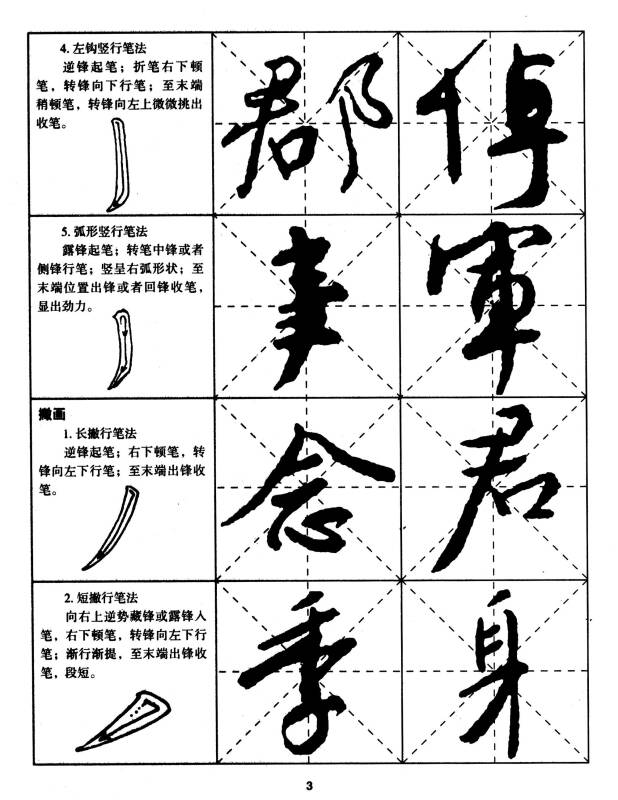 4. 左钩竖行笔法
逆锋起笔；折笔右下顿
笔，转锋向下行笔；至末端
稍顿笔，转锋向左上微微挑出
收笔。
郡
5. 弧形竖行笔法
露锋起笔；转笔中锋或者
侧锋行笔；竖呈右弧形状；至
末端位置出锋或者回锋收笔，
显出劲力。
事 軍
撇画
1. 长撇行笔法
逆锋起笔；右下顿笔，转
锋向左下行笔；至末端出锋收
笔。
念 君
2. 短撇行笔法
向右上逆势藏锋或露锋入
笔，右下顿笔，转锋向左下行
笔；渐行渐提，至末端出锋收
笔，段短。
季 身
3